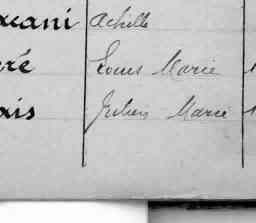 cani Achille
ré Louis Marie 1
ais Julien Marie 1